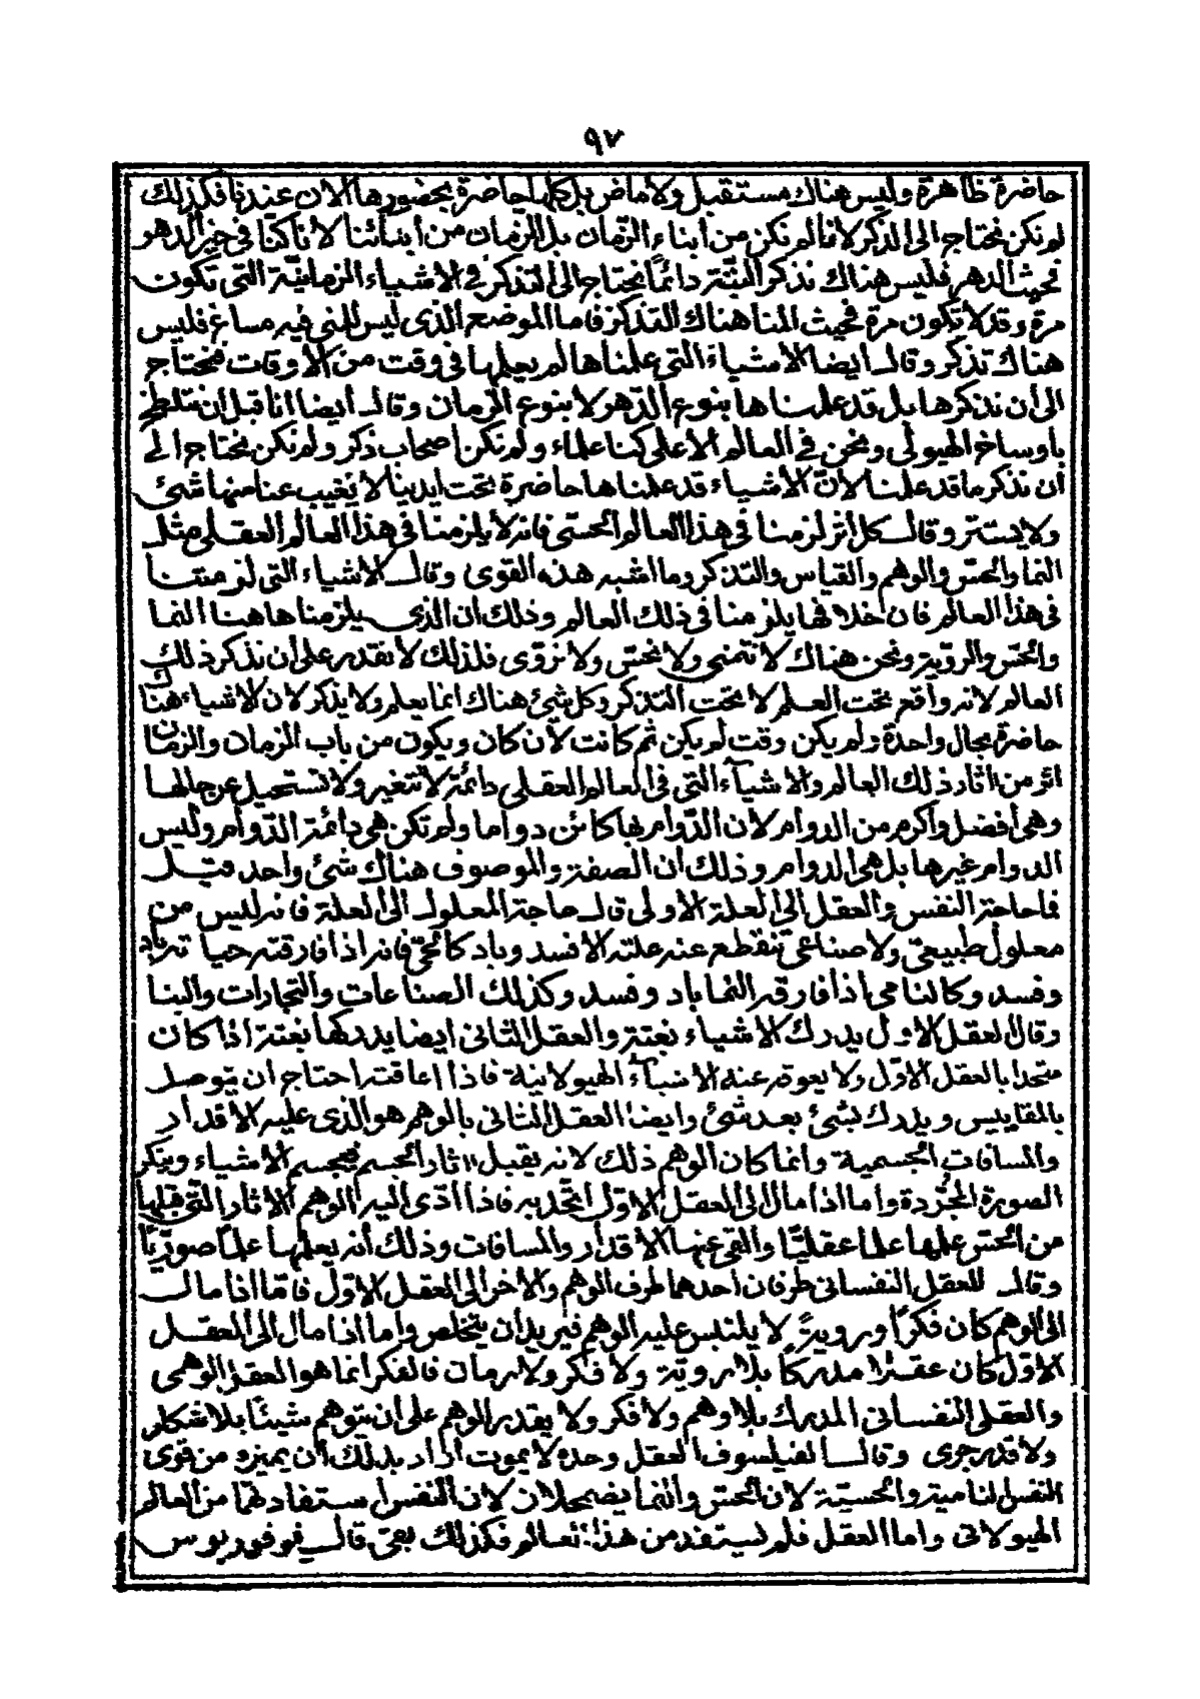 ٩٧
حاضرة ظاهرة وليس هناك مستقبل ولا ماض بل كلها حاضرة بحضورها الان عندنا فكذلك
لم نكن نحتاج الى الذكر لانا لم نكن من أبناء الزمان بل الزمان من أبنائنا لأنا كنا في حيز الدهر
فحيث الدهر فليس هناك تذكر البتة دائما نحتاج الى التذكر في الاشياء الزمانية التى تكون
مرة وقد لا تكون مرة فحيث المنا هناك التذكر فاما الموضع الذى ليس للمنى فيه مساغ فليس
هناك تذكر وقال أيضا الأشياء التى علمناها لم يعلمها فى وقت من الأوقات فنحتاج
الى أن نذكرها بل قد علمناها بنوع الدهر لا بنوع الزمان وقال أيضا انا قبل أن نتلطخ
باوساخ الهيولى ونحن في العالم الأعلى كنا علماء ولم نكن أصحاب ذكر ولم نكن نحتاج الى
أن نذكر ما قد علمنا لان الأشياء قد علمناها حاضرة تحت ايدينا لا يغيب عنا منها شئ
ولا يستتر وقال كل أثر لزمنا فى هذا العالم الحسى فانه لا يلزمنا فى هذا العالم العقلى مثل
النما والحس والوهم والقياس والتذكر وما اشبه هذه القوى وقال الاشياء التى لزمتنا
فى هذا العالم فان خلافها يلزمنا فى ذلك العالم وذلك ان الذى يلزمنا هاهنا النما
والحس والروية ونحن هناك لا نتمنى ولا نحس ولا نروى فلذلك لا نقدر على أن نذكر ذلك
العالم لانه واقع تحت العلم لا تحت التذكر وكل شئ هناك انما يعلم ولا يذكر لان الاشياء هناك
حاضرة بحال واحدة ولم يكن وقت لم يكن ثم كانت لأن كان ويكون من باب الزمان والزمان
اثر من اثار ذلك العالم والاشياء التى فى العالم العقلى دائمة لا تتغير ولا تستحيل عن حالها
وهى أفضل واكرم من الدوام لان الدوام بها كائن دواما ولم تكن هى دائمة الدوام وليس
الدوام غيرها بل هى الدوام وذلك ان الصفة والموصوف هناك شئ واحد قيل
فما حاجة النفس والعقل الى العلة الاولى قال حاجة المعلول الى العلة فانه ليس من
معلول طبيعى ولا صناعى تنقطع عنه علته الا فسد وباد كالحى فانه اذا فارقته حياته باد
وفسد وكالنامى اذا فارقه النما باد وفسد وكذلك الصناعات والتجارات والبنا
وقال العقل الاول يدرك الاشياء بغتة والعقل الثانى ايضا يدركها بغتة اذا كان
متحدا بالعقل الاول ولا يعوقه عنه الاشياء الهيولانية فاذا اعاقته احتاج ان يتوصل
بالمقاييس ويدرك بشئ بعد شئ وايضا العقل الثانى بالوهم هو الذى عليه الاقدار
والمسافات الجسمية وانما كان الوهم ذلك لانه يقبل اثار الجسم فيجسم الأشياء وينكر
الصورة المجردة واما اذا مال الى العقل الاول اتحد به فاذا ادى اليه الوهم الاثار التى قبلها
من الحس علمها علما عقليا والقى عنها الاقدار والمسافات وذلك أنه يعلمها علما صوريا
وقال للعقل النفسانى طرفان احدهما طرف الوهم والأخر الى العقل الاول فاما اذا مال
الى الوهم كان فكرا وروية لا يلتبس عليه الوهم فيريد ان يتخلص واما اذا مال الى العقل
الاول كان عقلا مدركا بلا روية ولا فكر ولا زمان فالفكر انما هو العقل الوهمى
والعقل النفسانى المدرك بلا وهم ولا فكر ولا يقدر الوهم على ان يتوهم شيئا بلا شكل
ولا قدر جرى وقال الفيلسوف العقل وحده لا يموت اراد بذلك أن يميزه من قوى
النفس النامية والحسية لان الحس والنما يضمحلان لان النفس استفادتهما من العالم
الهيولانى واما العقل فلم تستفده من هذا العالم فكذلك بقى قال فوفوريوس